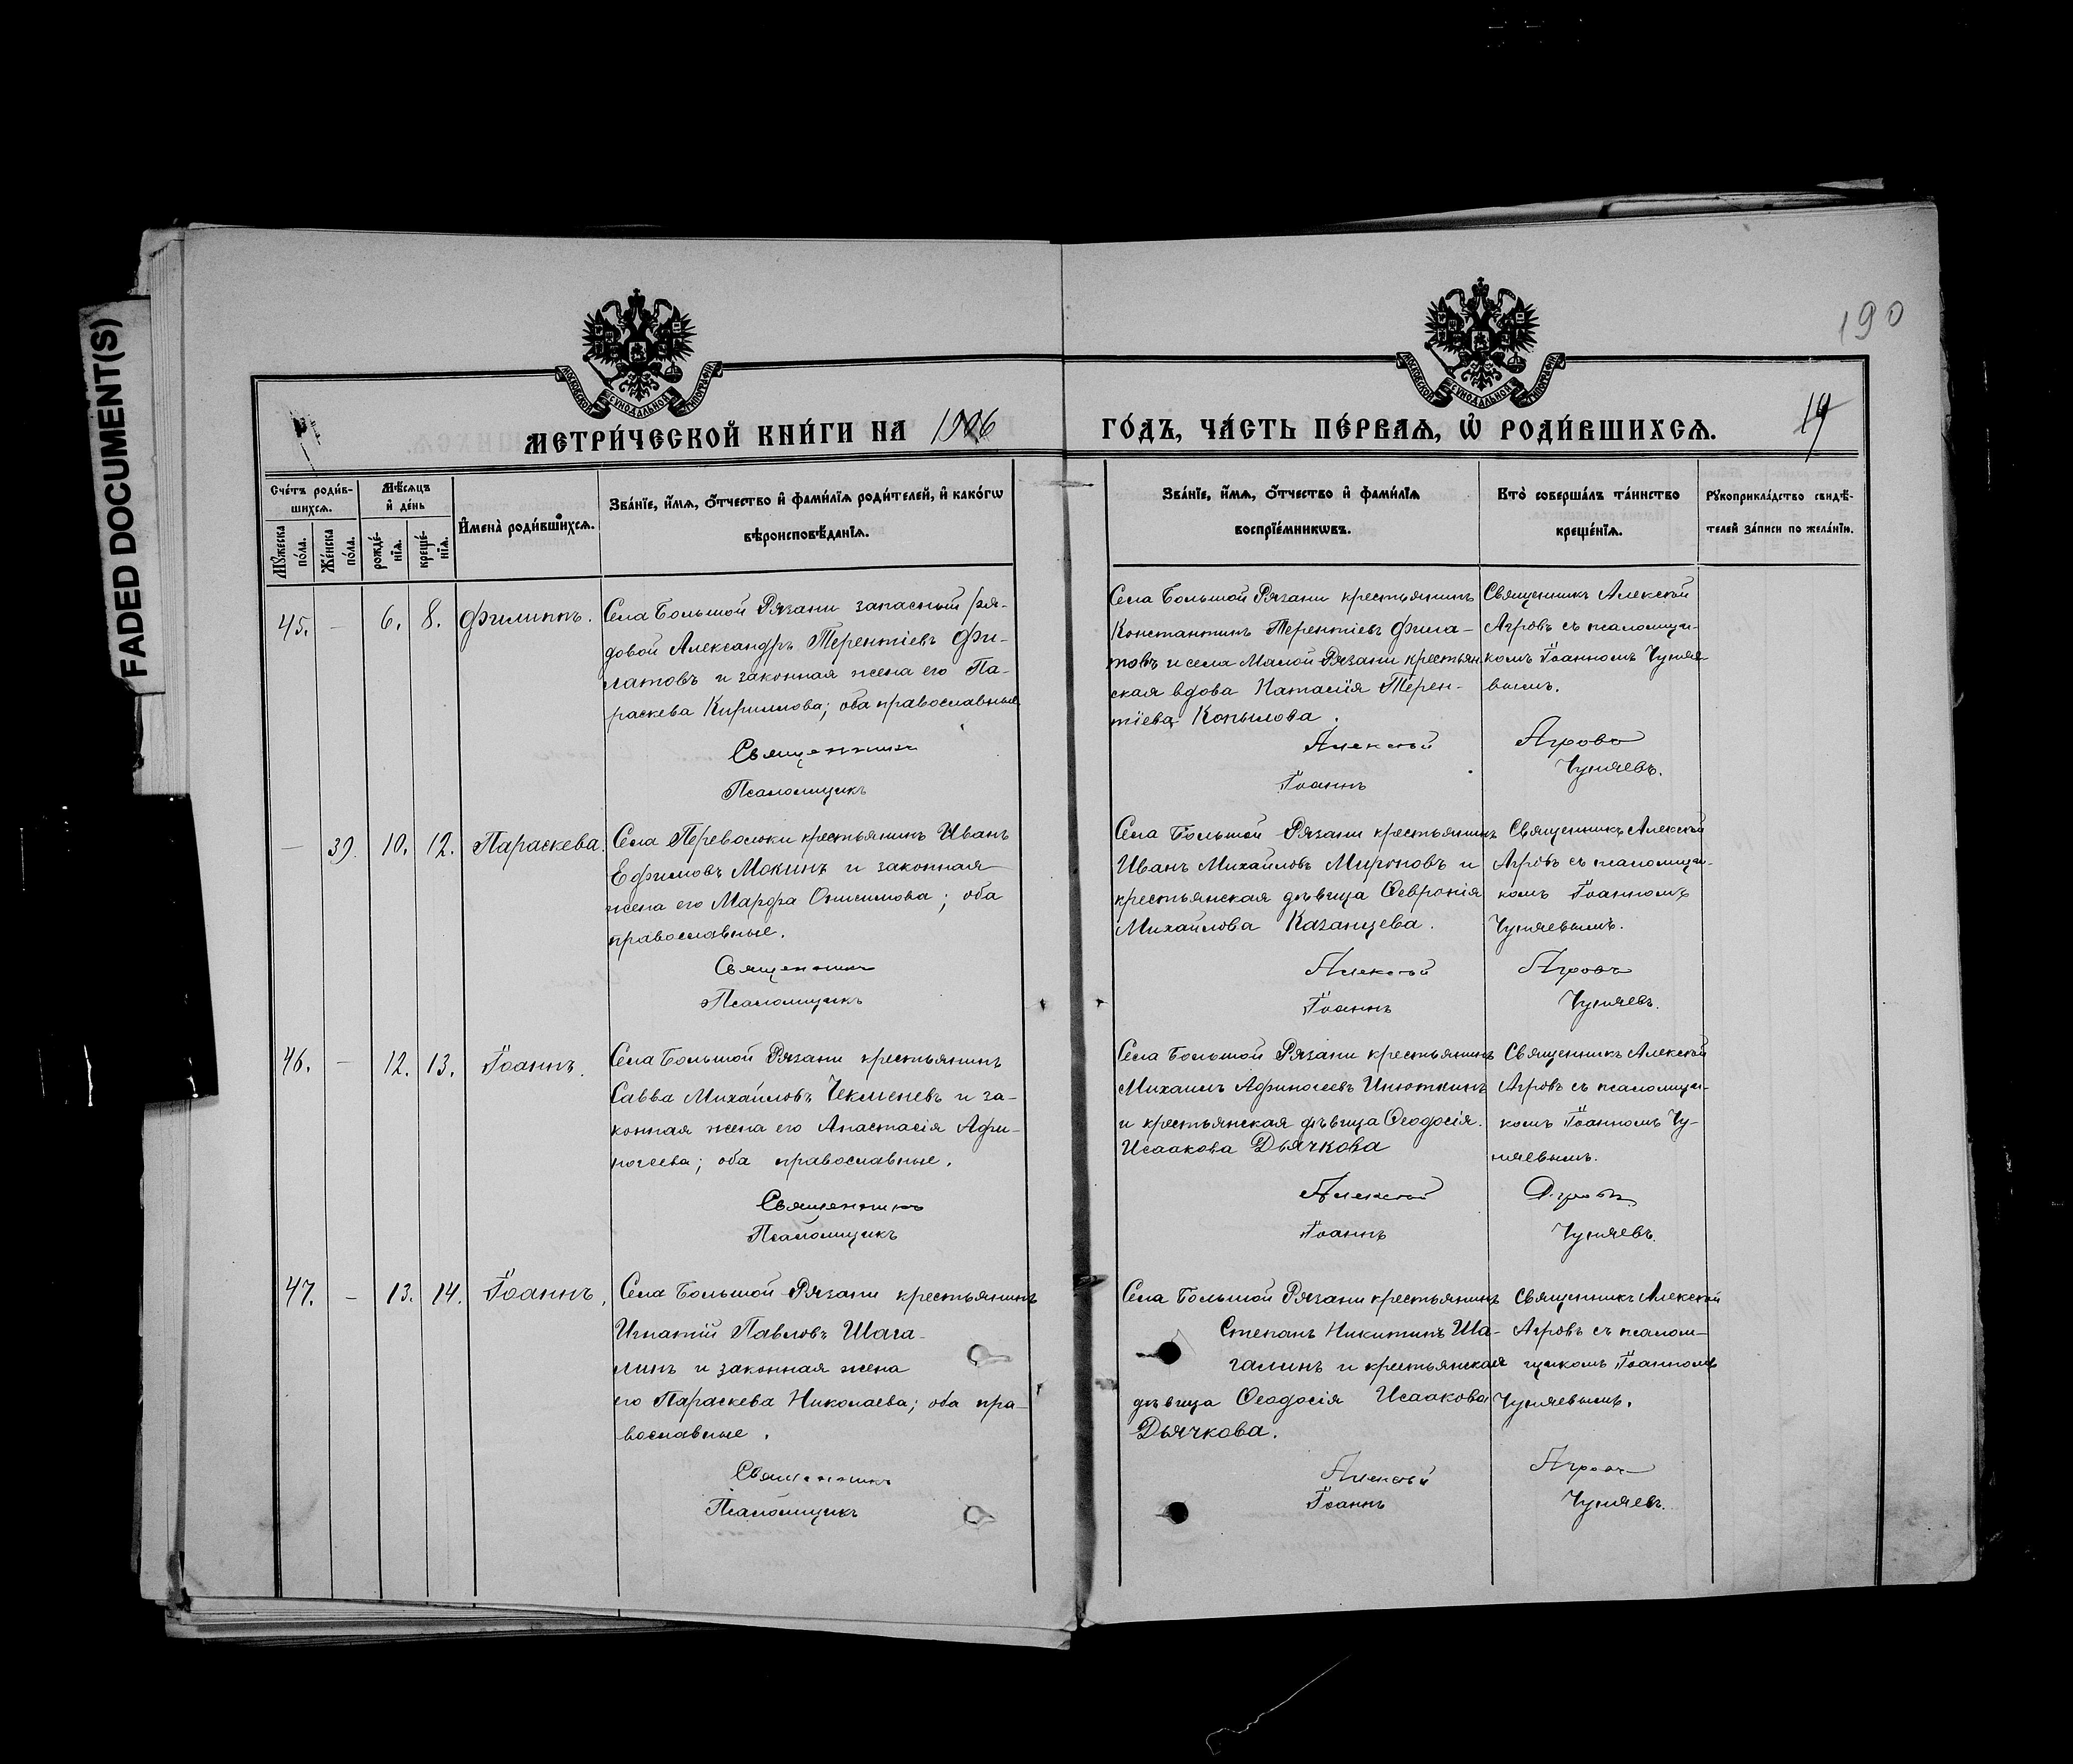 FADED DOCUMENT(S)
190
МОСКОВСКОЙ СѴНОДАЛЬНОЙ ТИПОГРАФІИ
МОСКОВСКОЙ СѴНОДАЛЬНОЙ ТИПОГРАФІИ
МЕТРИ́ЧЕСКОЙ КНИ́ГИ НА 1906
ГО́ДЪ, ЧА́СТЬ ПЕ́РВАѦ, Ѡ РОДИ́ВШИХСѦ.
19
Сче́тъ роди́в-
шихсѧ.
Му́жеска
по́ла.
Же́нска
по́ла.
Мѣ́сѧцъ
и҆ де́нь
рожде́-
нїѧ.
креще́-
нїѧ.
И҆мена̀ роди́вшихсѧ.
Зва́нїе, и҆́мѧ, ѻ҆́тчество и҆ фами́лїѧ роди́телей, и҆ како́гѡ
вѣроисповѣ́данїѧ.
Зва́нїе, и҆́мѧ, ѻ҆́тчество и҆ фами́лїѧ
воспрїе́мникѡвъ.
Кто̀ соверша́лъ та́инство
креще́нїѧ.
Рꙋкоприкла́дство свидѣ́-
телей за́писи по жела́нїю.
45. — 6. 8. Филиппъ.
Села Большой Рязани запасный ря-
довой Александръ Терентіевъ Фи-
латовъ и законная жена его Па-
раскева Кириллова; оба православные
Священникъ
Псаломщикъ
Села Большой Рязани крестьянинъ
Константинъ Терентіевъ Фила-
товъ и села Малой Рязани крестьян
ская вдова Наталія Терен-
тіева Копылова.
Алексѣй
Іоаннъ
Священникъ Алексѣй
Агровъ съ псаломщи-
комъ Іоанномъ Чуняе
вымъ.
Агровъ
Чуняевъ.
— 39. 10. 12. Параскева.
Села Переволоки крестьянинъ Иванъ
Ефимовъ Мокинъ и законная
жена его Марфа Онисимова; оба
православные.
Священникъ
Псаломщикъ
Села Большой Рязани крестьянинъ
Иванъ Михайловъ Мироновъ и
крестьянская дѣвица Ѳевронія
Михайлова Казанцева.
Алексѣй
Іоаннъ
Священникъ Алексѣй
Агровъ съ псаломщи-
комъ Іоанномъ
Чуняевымъ.
Агровъ
Чуняевъ.
46. — 12. 13. Іоаннъ.
Села Большой Рязани крестьянинъ
Савва Михайловъ Чекменевъ и за-
конная жена его Анастасія Афи-
ногеева; оба православные.
Священникъ
Псаломщикъ
Села Большой Рязани крестьянинъ
Михаилъ Афиногеевъ Инюткинъ
и крестьянская дѣвица Ѳеодосія
Исаакова Дьячкова
Алексѣй
Іоаннъ
Священникъ Алексѣй
Агровъ съ псаломщи-
комъ Іоанномъ Чу-
няевымъ.
Агровъ
Чуняевъ.
47. — 13. 14. Іоаннъ.
Села Большой Рязани крестьянинъ
Игнатій Павловъ Шага-
линъ и законная жена
его Параскева Николаева; оба пра-
вославные.
Священникъ
Псаломщикъ
Села Большой Рязани крестьянинъ
Степанъ Никитинъ Ша-
галинъ и крестьянская
дѣвица Ѳеодосія Исаакова
Дьячкова.
Алексѣй
Іоаннъ
Священникъ Алексѣй
Агровъ съ псалом-
щикомъ Іоанномъ
Чуняевымъ.
Агровъ
Чуняевъ.